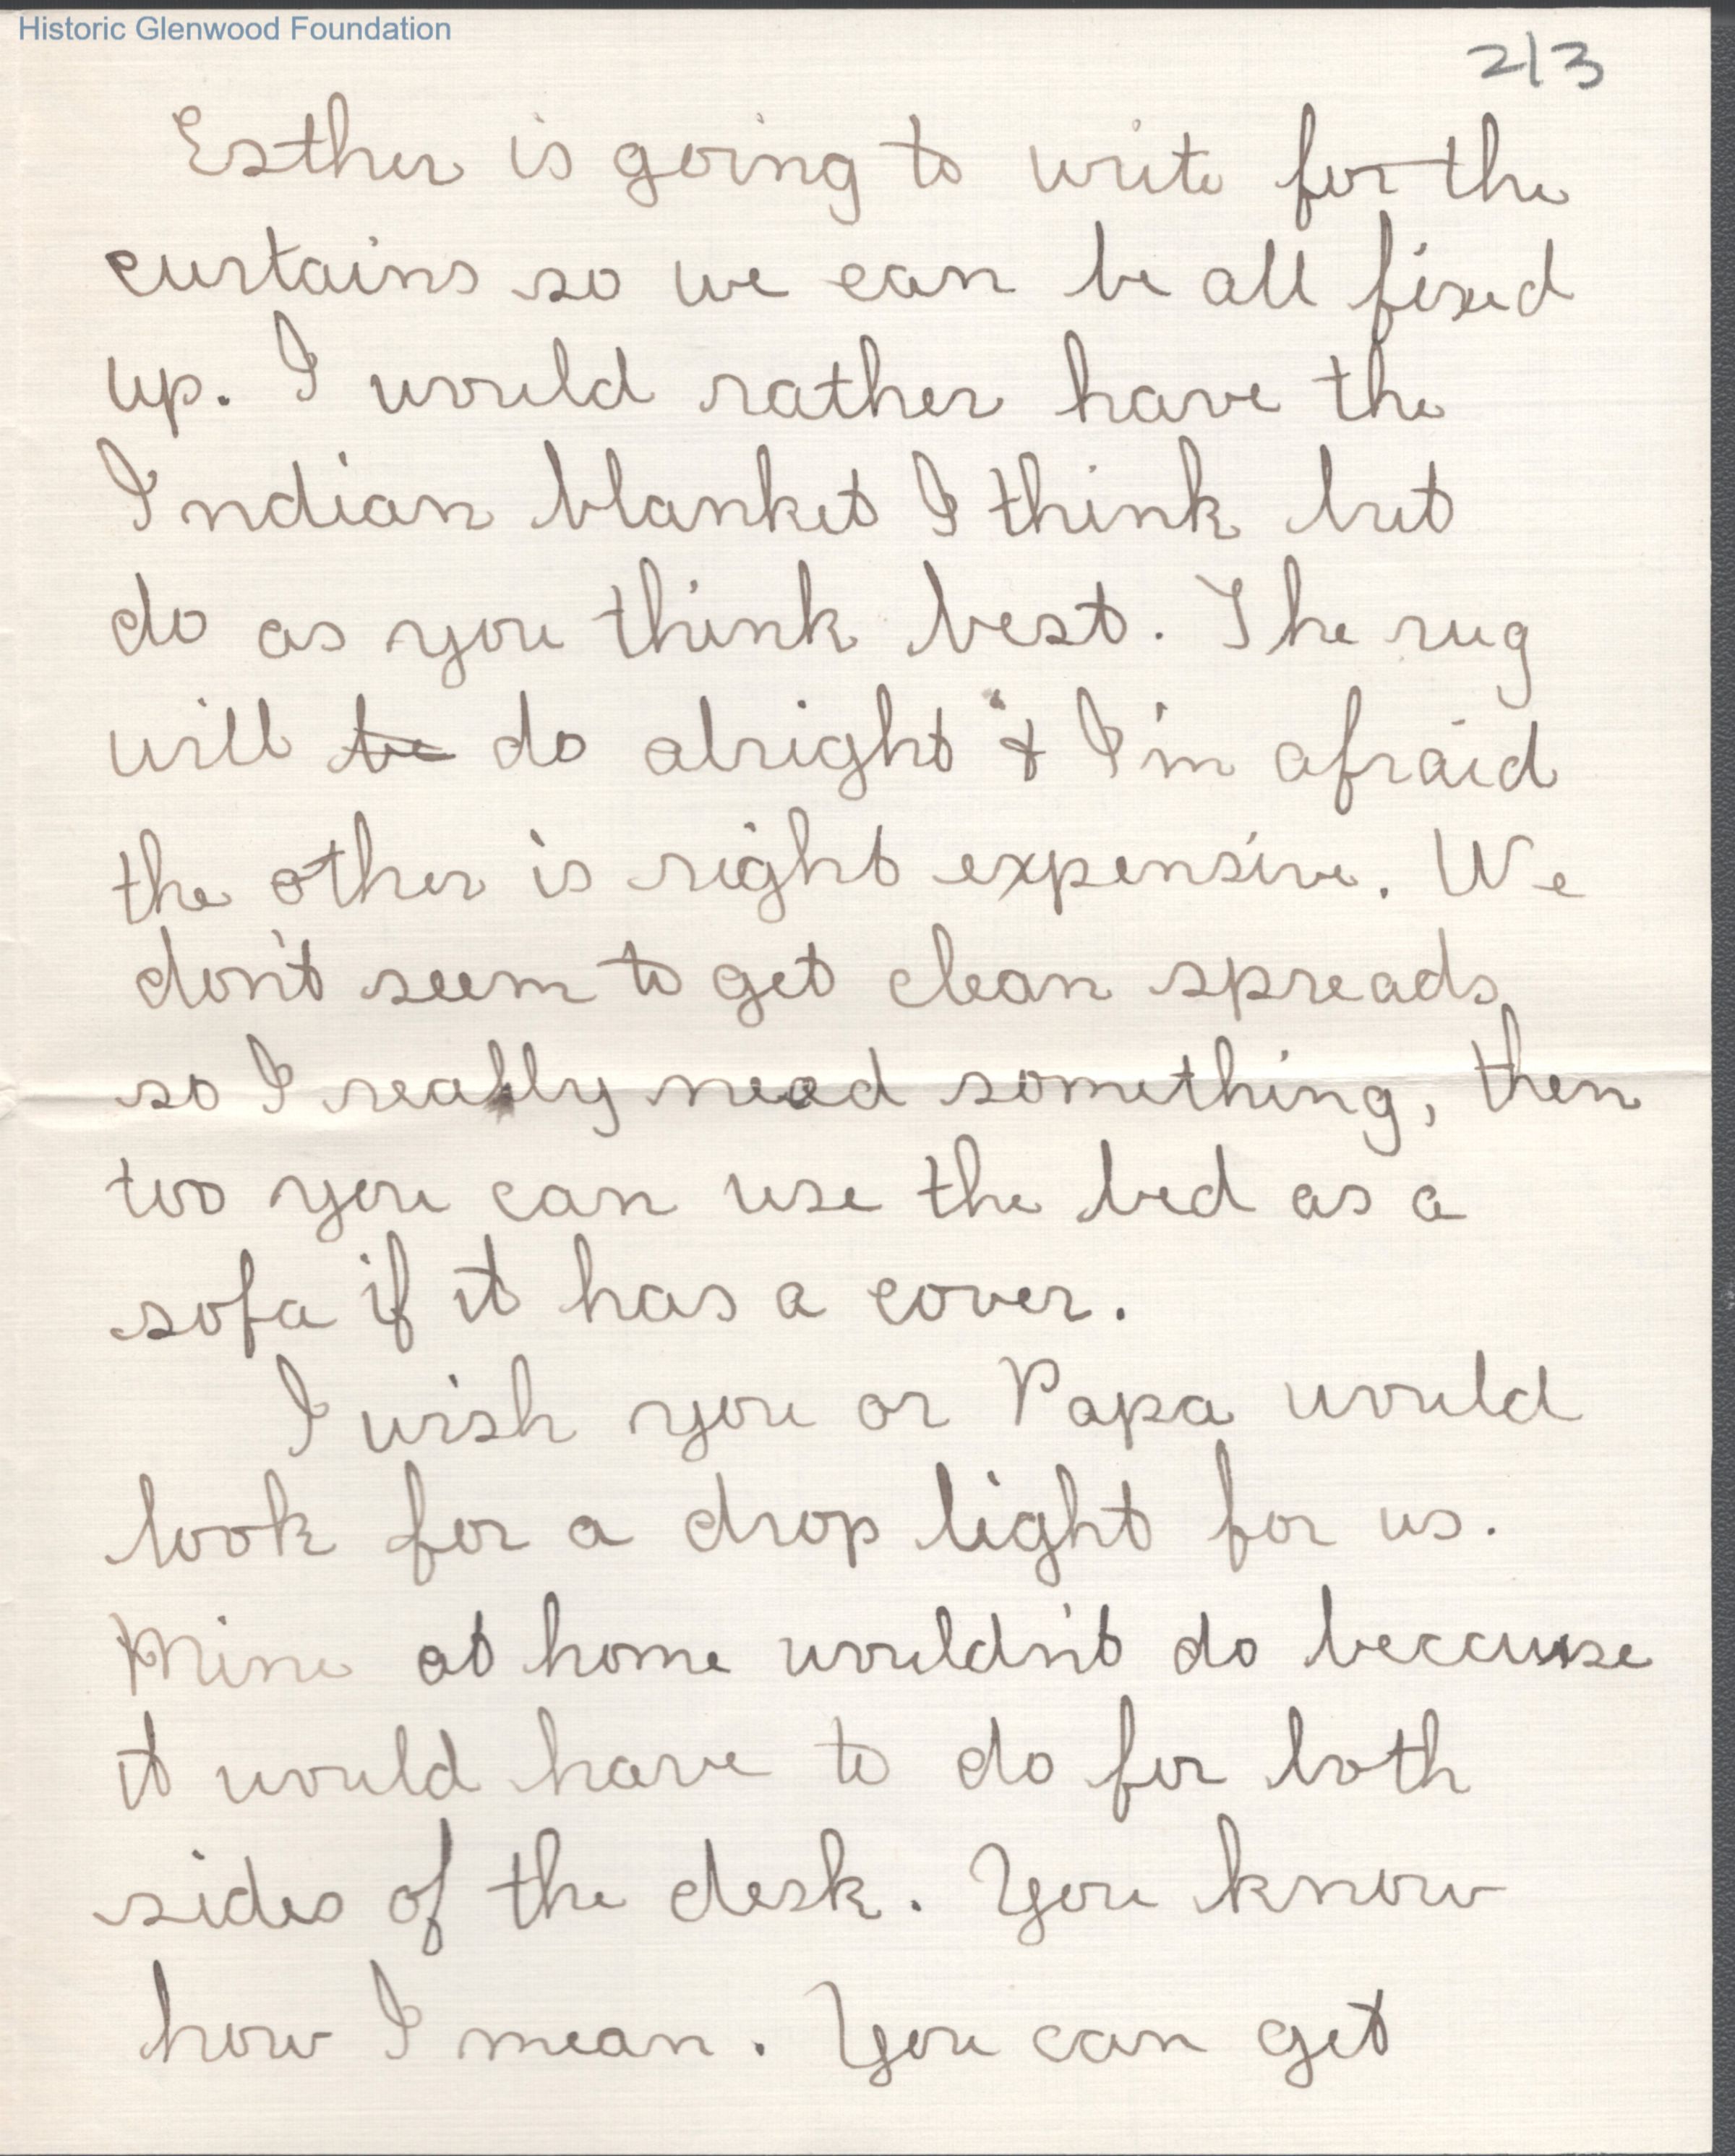 Historic Glenwood Foundation
2/3
Esther is going to write for the
curtains so we can be all fixed
up. I would rather have the
Indian blanket I think but
do as you think best. The rug
will be do alright & I'm afraid
the other is right expensive. We
don't seem to get clean spreads
so I really need something, then
too you can use the bed as a
sofa if it has a cover.
I wish you or Papa would
look for a drop light for us.
Mine at home wouldn't do because
it would have to do for both
sides of the desk. You know
how I mean. You can get